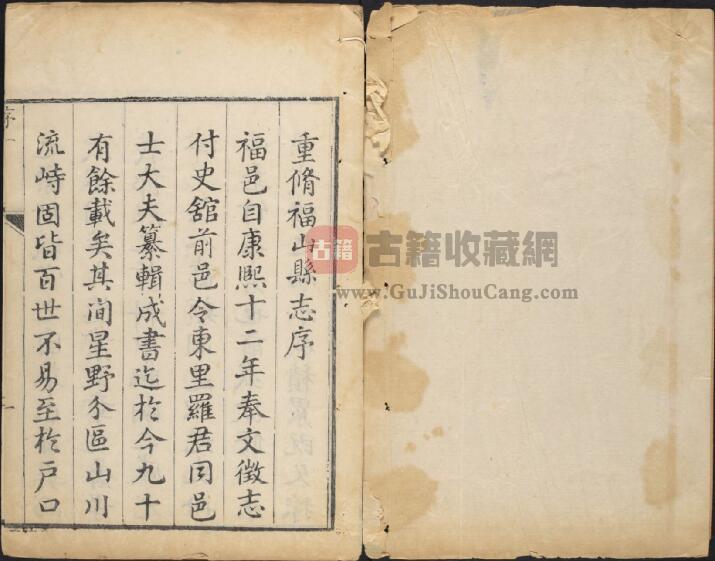 重脩福山縣志序
福邑自康熙十二年奉文徵志
付史舘前邑令東里羅君同邑
士大夫纂輯成書迄於今九十
有餘載矣其间星野分區山川
流峙固皆百世不易至於戸口
序
古籍
古籍收藏網
www.GuJiShouCang.com